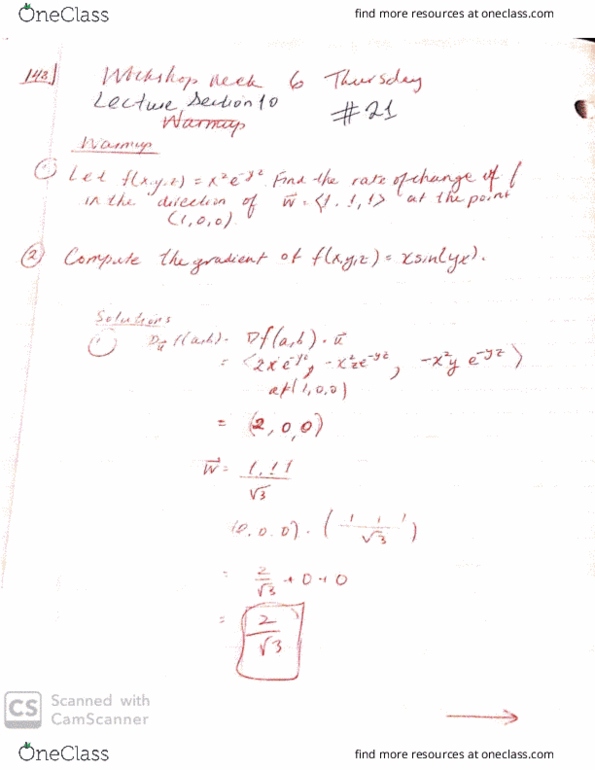 OneClass
find more resources at oneclass.com
143
Workshop Week 6 Thursday
Lecture Section 10
#21
Warmup
Warmup
① Let f(x,y,z) = x²e^-yz. Find the rate of change of f
in the direction of w⃗ = ⟨1,1,1⟩ at the point
(1,0,0)
② Compute the gradient of f(x,y,z) = xsin(yx).
Solutions
① Du⃗ f(a,b) = ∇f(a,b) · u⃗
= ⟨2xe^-yz, -x²ze^-yz, -x²y e^-yz⟩
at (1,0,0)
= (2,0,0)
w⃗ = 1,1,1 / √3
(2,0,0) · (1 1 1 / √3)
= 2/√3 + 0 + 0
= 2/√3
CS Scanned with
CamScanner
OneClass
find more resources at oneclass.com